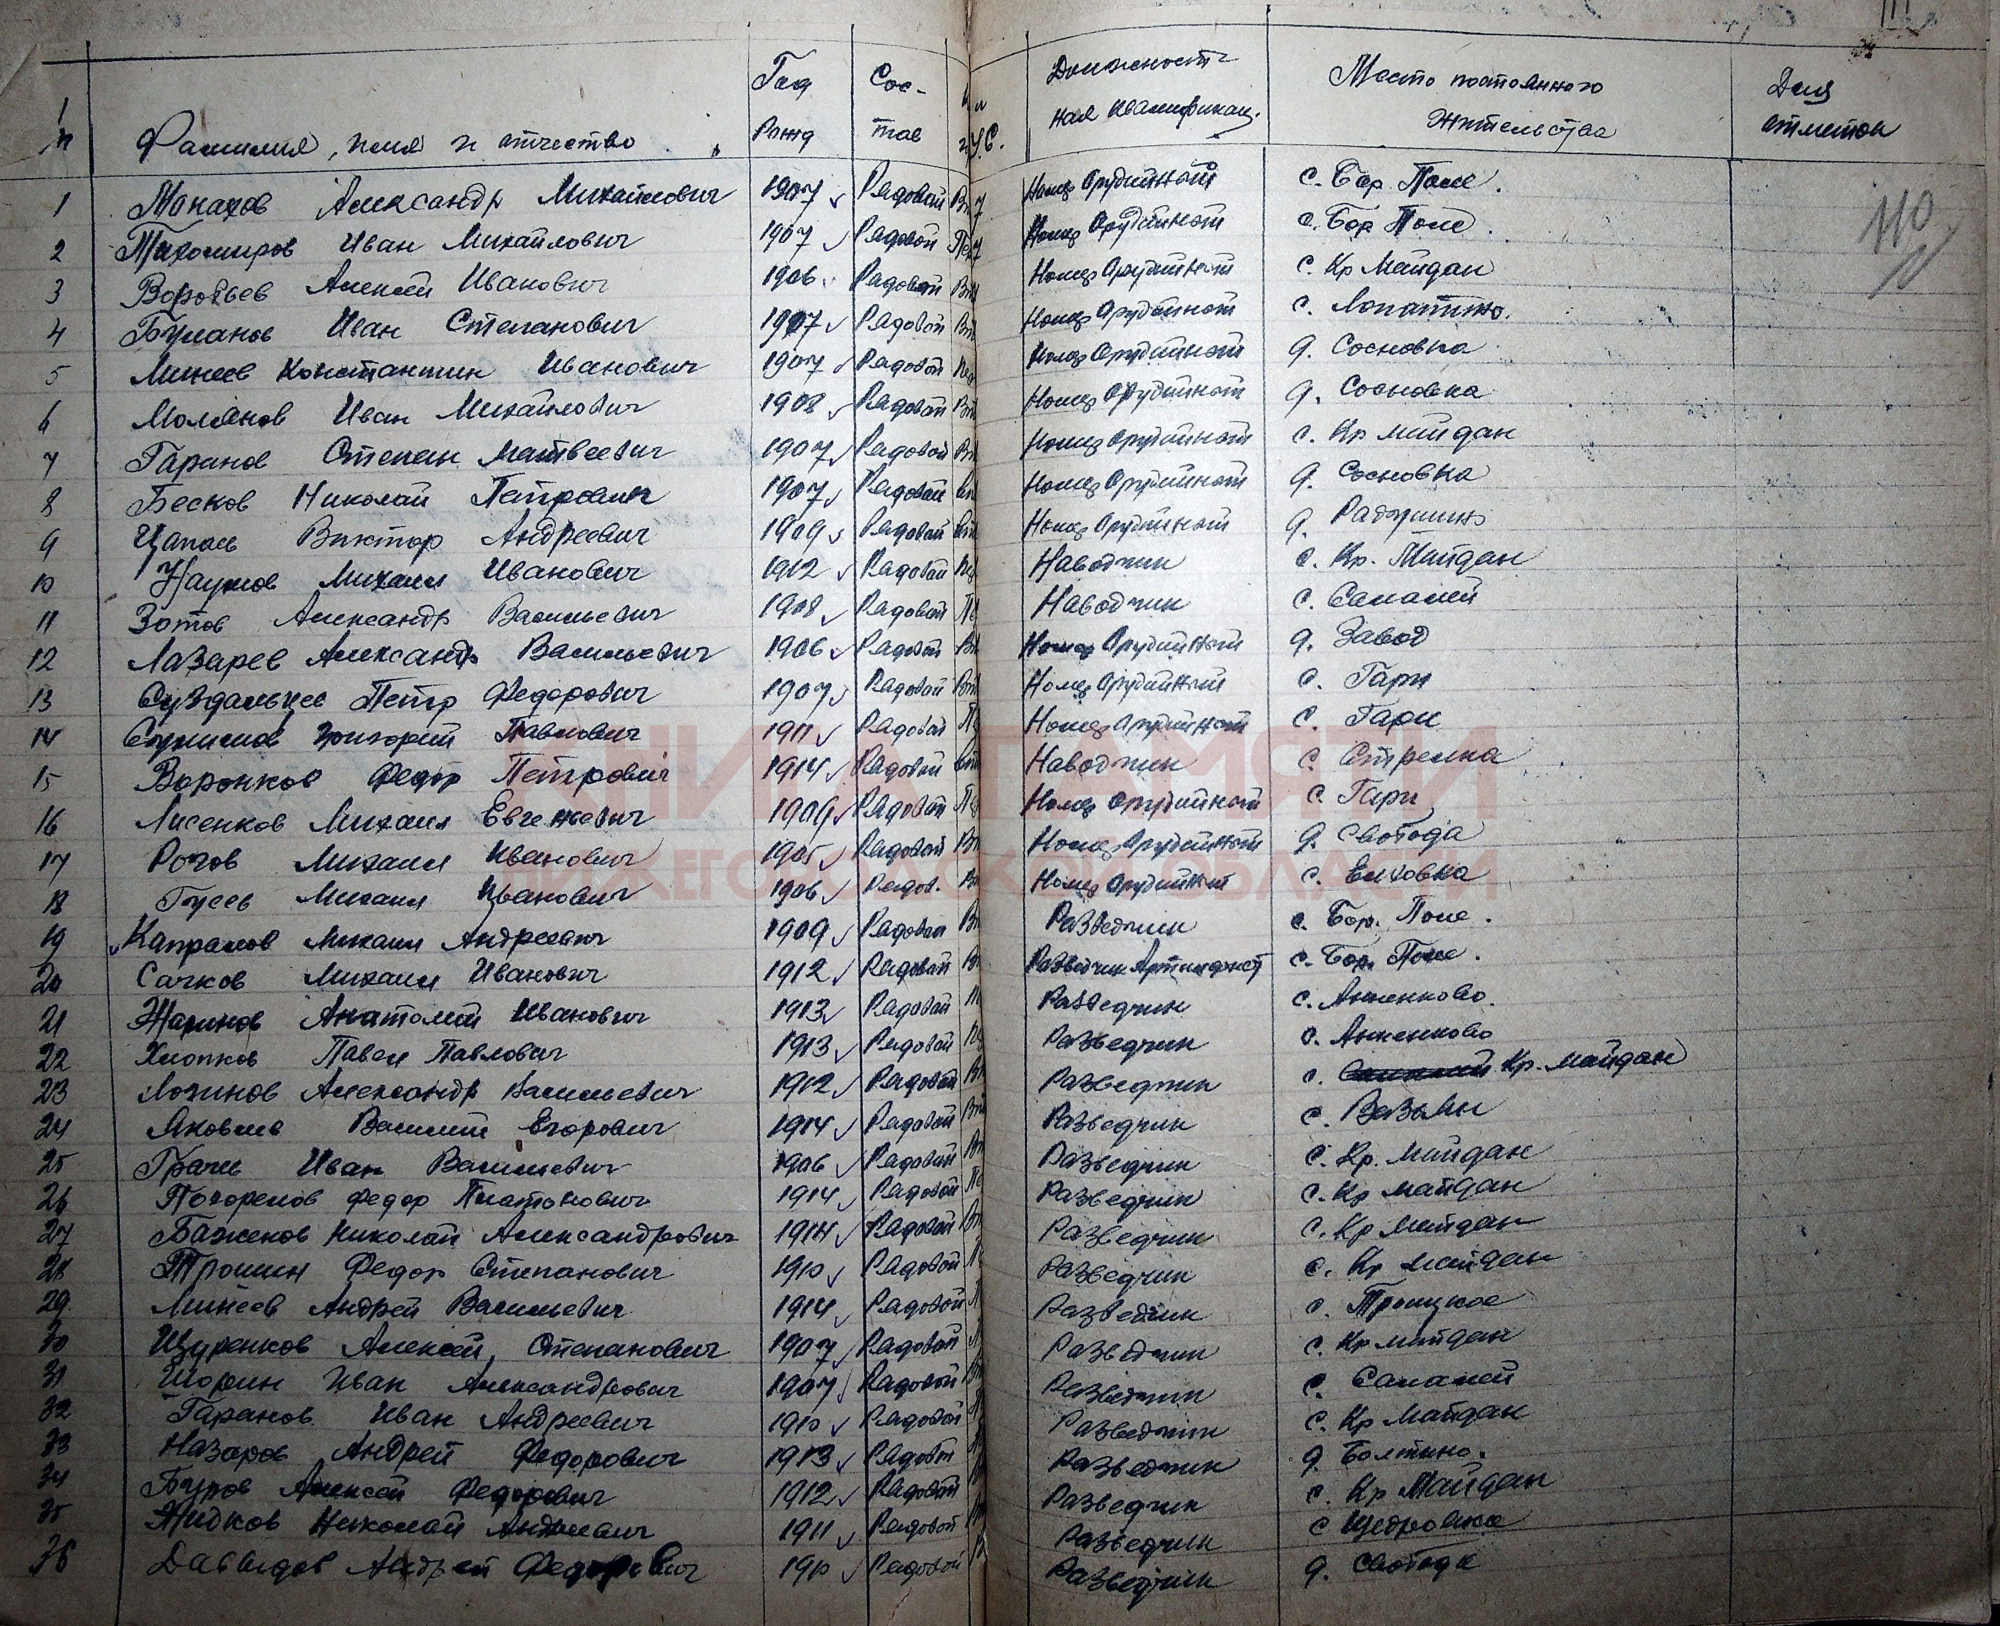 Фамилия, имя и отчество Год Рожд Сос- тав У.С. Должностная квалификац. Место постоянного жительства Для отметок
110
1 Монахов Александр Михайлович 1907 Рядовой Номер Орудийный с. Бор. Поле.
2 Тихомиров Иван Михайлович 1907 Рядовой Номер Орудийный с. Бор Поле.
3 Воробьев Алексей Иванович 1906 Рядовой Номер Орудийный с. Кр Майдан
4 Буланов Иван Степанович 1907 Рядовой Номер Орудийный с. Лопатино.
5 Минеев Константин Иванович 1907 Рядовой Номер Орудийный д. Сосновка
6 Иван Михайлович 1908 Рядовой Номер Орудийный д. Сосновка
7 Гаранов Степан Матвеевич 1907 Рядовой Номер Орудийный с. Кр майдан
8 Бесков Николай Петрович 1907 Рядовой Номер Орудийный д. Сосновка
9 Виктор Андреевич 1909 Рядовой Номер Орудийный д.
10 Наумов Михаил Иванович 1912 Рядовой Наводчик с. Кр. Майдан
11 Зотов Александр Васильевич 1908 Рядовой Наводчик с. Саламей
12 Лазарев Александр Васильевич 1906 Рядовой Номер Орудийный д. Завод
13 Суздальцев Петр Федорович 1907 Рядовой Номер Орудийный с. Гари
14 Григорий Павлович 1911 Рядовой Номер Орудийный с. Гари
15 Воронков Федор Петрович 1914 Рядовой Наводчик с. Стрелка
16 Лисенков Михаил Евгеньевич 1909 Рядовой Номер Орудийный с Гари
17 Рогов Михаил Иванович 1905 Рядовой Номер Орудийный д. Свобода
18 Гусев Михаил Иванович 1906 Рядов. Номер Орудийный с. Елховка
19 Капралов Михаил Андреевич 1909 Рядовой Разведчик с. Бор. Поле.
20 Сачков Михаил Иванович 1912 Рядовой Разведчик с. Бор. Поле.
21 Жаринов Анатолий Иванович 1913 Рядовой Разведчик с. Анненково.
22 Хлопков Павел Павлович 1913 Рядовой Разведчик с. Анненково
23 Логинов Александр Васильевич 1912 Рядовой Разведчик с. Кр. майдан
24 Яковлев Василий Егорович 1914 Рядовой Разведчик с. Вазьян
25 Грачев Иван Васильевич 1906 Рядовой Разведчик с. Кр. майдан
26 Погорелов Федор Платонович 1914 Рядовой Разведчик с. Кр майдан
27 Баженов Николай Александрович 1914 Рядовой Разведчик с. Кр майдан
28 Трошин Федор Степанович 1910 Рядовой Разведчик с. Кр майдан
29 Минеев Андрей Васильевич 1914 Рядовой Разведчик с. Троицкое
30 Щуренков Алексей Степанович 1907 Рядовой Разведчик с. Кр майдан
31 Шорин Иван Александрович 1907 Рядовой Разведчик с. Саламей
32 Гаранов Иван Андреевич 1910 Рядовой Разведчик с. Кр Майдан
33 Назаров Андрей Федорович 1913 Рядовой Разведчик д. Болтино.
34 Буров Алексей Федорович 1912 Рядовой Разведчик с. Кр Майдан
35 Жидков Николай Андреевич 1911 Рядовой Разведчик с Щедровка
36 Давыдов Андрей Федорович 1910 Рядовой Разведчик д. Свобода
КНИГА ПАМЯТИ
НИЖЕГОРОДСКОЙ ОБЛАСТИ